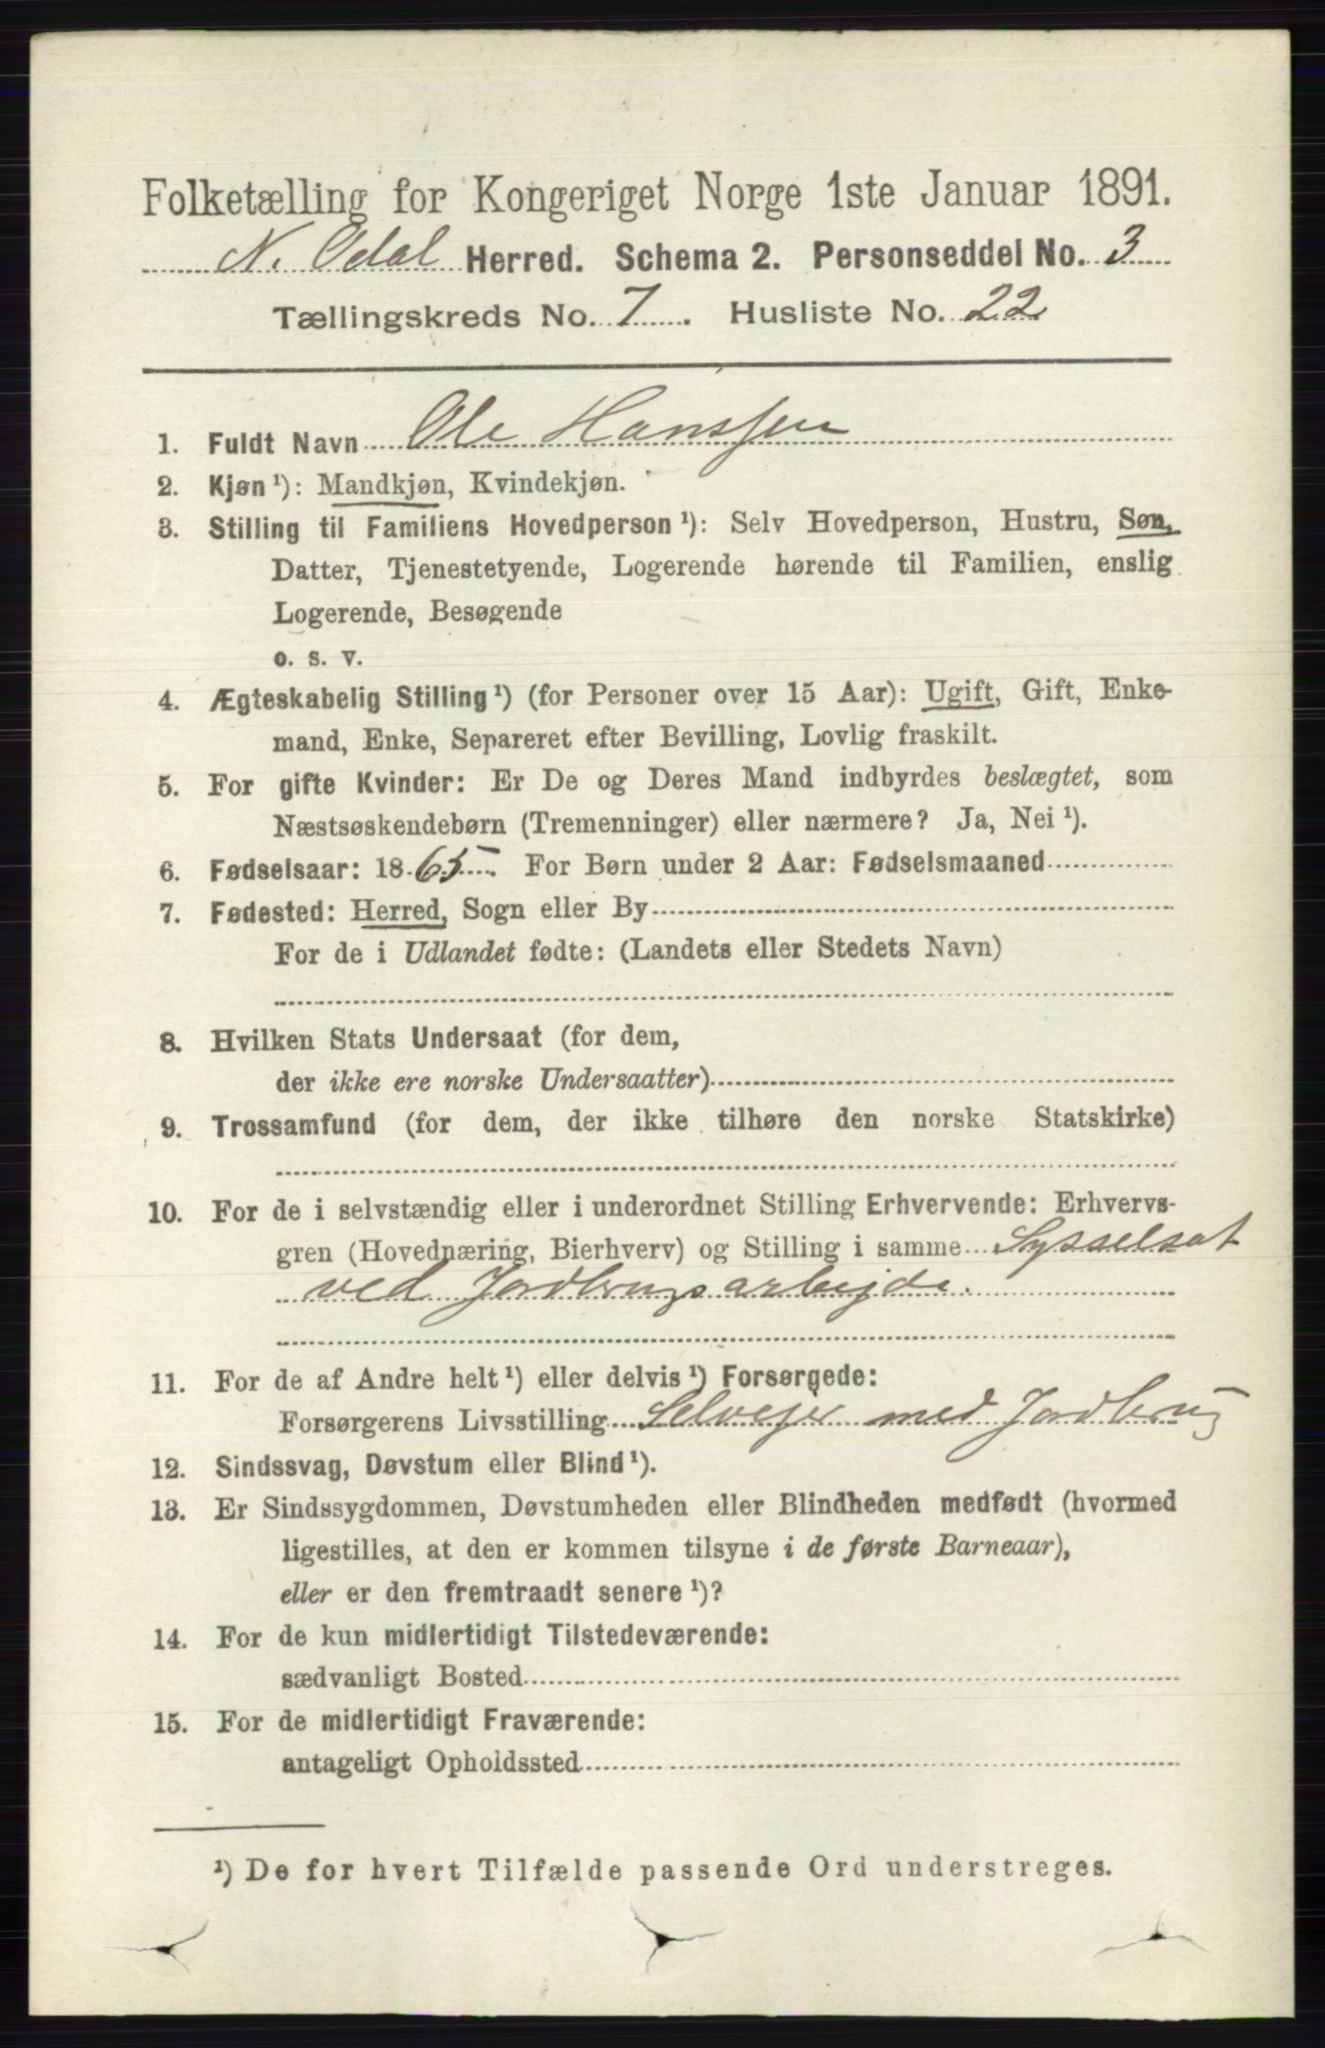 Folketælling for Kongeriget Norge 1ste Januar 1891.
N. Odal Herred. Schema 2. Personseddel No. 3
Tællingskreds No. 7. Husliste No. 22
1. Fuldt Navn Ole Hanssen
2. Kjøn ¹): Mandkjøn, Kvindekjøn.
3. Stilling til Familiens Hovedperson ¹): Selv Hovedperson, Hustru, Søn,
Datter, Tjenestetyende, Logerende hørende til Familien, enslig
Logerende, Besøgende
o. s. v.
4. Ægteskabelig Stilling ¹) (for Personer over 15 Aar): Ugift, Gift, Enke-
mand, Enke, Separeret efter Bevilling, Lovlig fraskilt.
5. For gifte Kvinder: Er De og Deres Mand indbyrdes beslægtet, som
Næstsøskendebørn (Tremenninger) eller nærmere? Ja, Nei ¹).
6. Fødselsaar: 1865. For Børn under 2 Aar: Fødselsmaaned
7. Fødested: Herred, Sogn eller By
For de i Udlandet fødte: (Landets eller Stedets Navn)
8. Hvilken Stats Undersaat (for dem,
der ikke ere norske Undersaatter)
9. Trossamfund (for dem, der ikke tilhøre den norske Statskirke)
10. For de i selvstændig eller i underordnet Stilling Erhvervende: Erhvervs-
gren (Hovednæring, Bierhverv) og Stilling i samme Sysselsat
ved Jordbrugsarbejde.
11. For de af Andre helt ¹) eller delvis ¹) Forsørgede:
Forsørgerens Livsstilling Selvejer med Jordbrug
12. Sindssvag, Døvstum eller Blind ¹).
13. Er Sindssygdommen, Døvstumheden eller Blindheden medfødt (hvormed
ligestilles, at den er kommen tilsyne i de første Barneaar),
eller er den fremtraadt senere ¹)?
14. For de kun midlertidigt Tilstedeværende:
sædvanligt Bosted
15. For de midlertidigt Fraværende:
antageligt Opholdssted
¹) De for hvert Tilfælde passende Ord understreges.